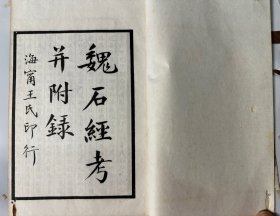 魏石經考
并附録
海甯王氏印行